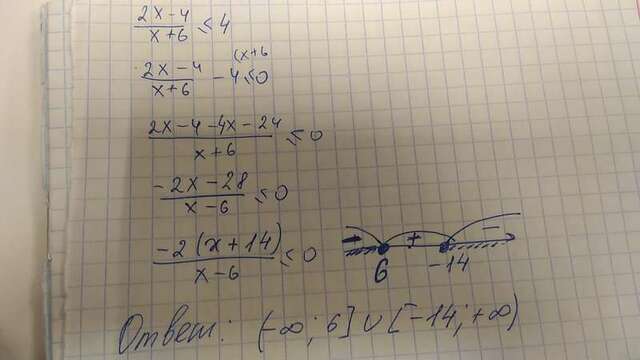 (2x-4)/(x+6) ≤ 4
(2x-4)/(x+6) - 4 ≤ 0 (x+6
(2x-4-4x-24)/(x+6) ≤ 0
(-2x-28)/(x-6) ≤ 0
(-2(x+14))/(x-6) ≤ 0
- + -
6 -14
Ответ: (-∞; 6] ∪ [-14; +∞)